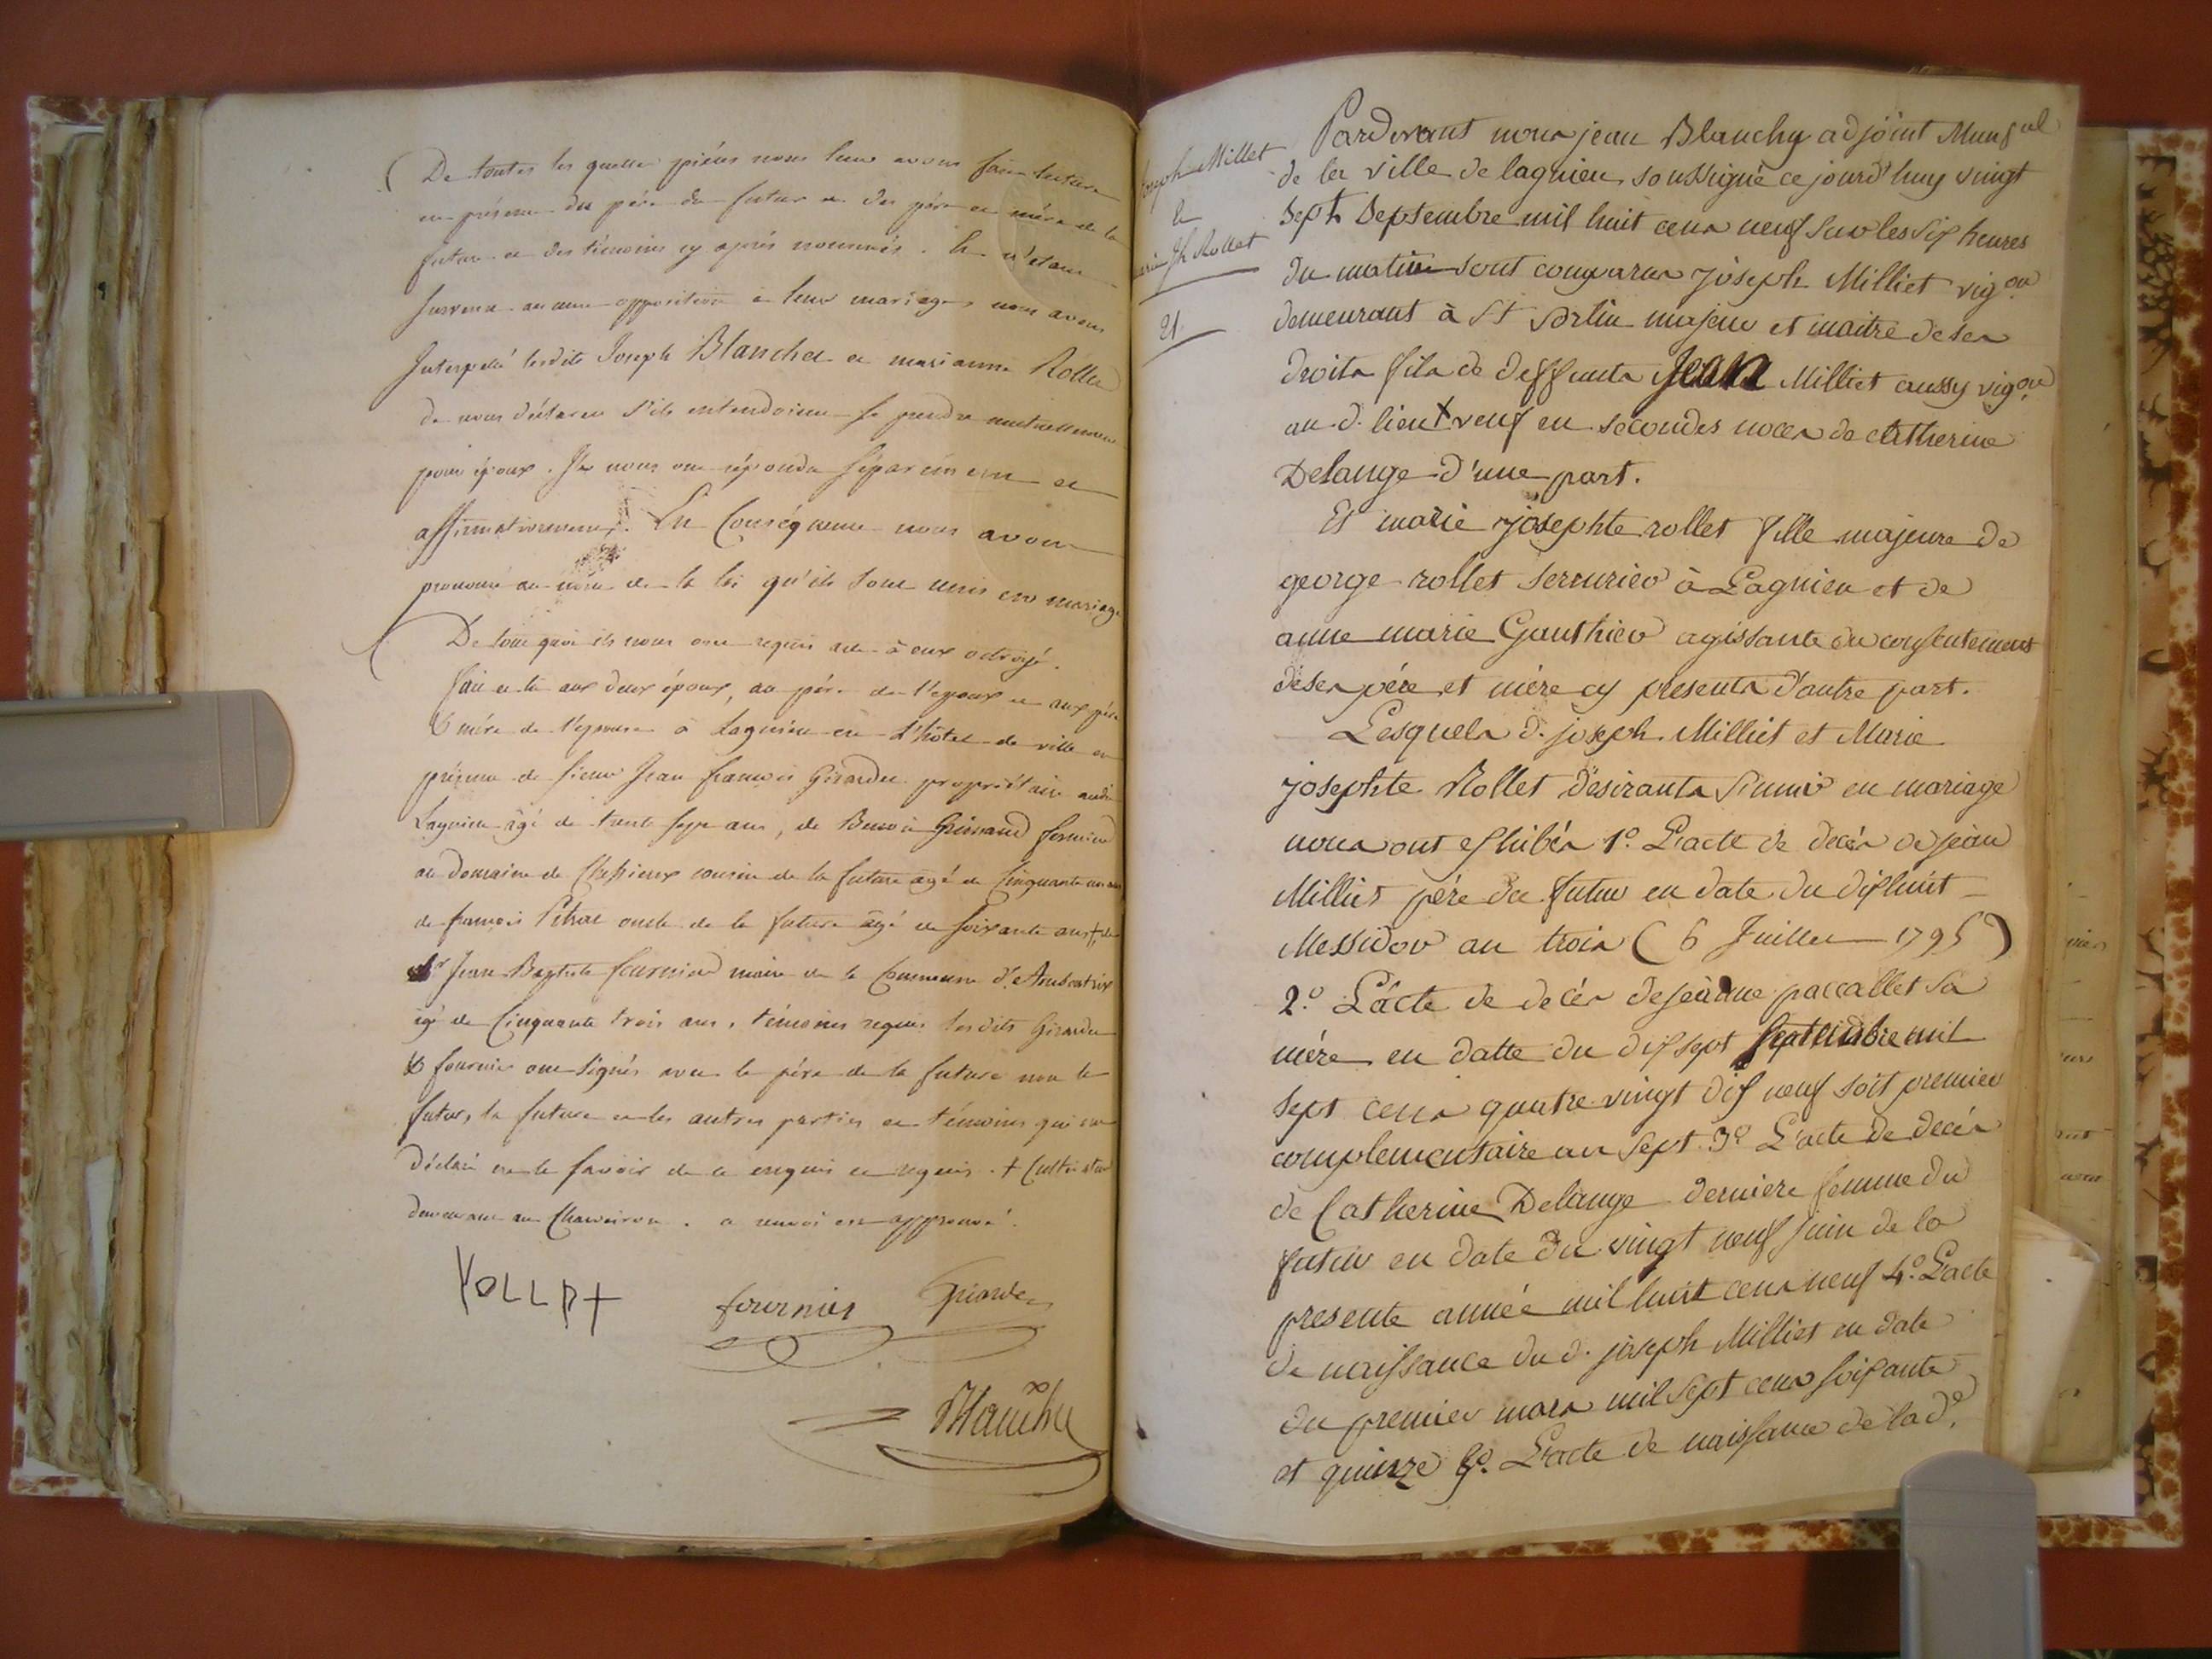 De toutes les quelles pièces nous leur avons fait lecture
en présence du père du futur et des père et mère de la
future et des témoins cy après nommés. Et n'étant
survenu aucune opposition à leur mariage, nous avons
Interpellé lesdits Joseph Blanchet et marianne Rollet
de nous déclarer s'ils entendoient se prendre mutuellement
pour époux. Ils nous ont répondu séparément et
affirmativement. En Conséquence nous avons
prononcé au nom de la loi qu'ils sont unis en mariage
De tout quoi ils nous ont requis acte à eux octroyé.
fait et lu aux deux époux, au père de l'époux et aux père
& mère de l'épouse à Lagnieu en l'hôtel de ville en
présence de sieur Jean françois Girardet propriétaire audit
Lagnieu âgé de trente sept ans, de Benoit fermier
au domaine de cousin de la future agé de Cinquante un ans
de françois oncle de la future âgé de soixante ans +, de
Sr Jean Baptiste fournier maire de la Commune d'Ambutrix
agé de Cinquante trois ans, témoins requis lesdits Girardet
& fournier ont signés avec le père de la future non le
futur, la future et les autres parties et témoins qui ont
déclaré ne le savoir de ce enquis et requis. + Cultivateur
demeurant au . ce renvoi est approuvé.
ROLLET fournier Girardet
Blanchy
Joseph Millet
et
marie Jh Rollet
21
Pardevant nous jean Blanchy adjoint Municipal
de la ville de lagnieu soussigné ce jourd'huy vingt
sept Septembre mil huit cens neuf sur les six heures
du matin sont comparus joseph Milliet vig.on
demeurant à St Sorlin majeur et maitre de ses
droits fils de deffunts Jean Milliet aussy vig.on
au d. lieu X veuf en secondes noces de Catherine
Delange d'une part.
Et marie josephte rollet fille majeure de
george rollet serrurier à Lagnieu et de
anne marie Gauthier agissante du consentement
de ses père et mère cy presents d'autre part.
Lesquels d. joseph Milliet et Marie
josephte Rollet desirants s'unir en mariage
nous ont exhibés 1.º L'acte de decés de jean
Milliet père du futur en date du dixhuit
Messidor an trois (6 Juillet 1795)
2.º L'acte de decés de jeanne paccallet sa
mère en datte du dix sept Septembre mil
sept cens quatre vingt dix neuf soit premier
complementaire an sept. 3º L'acte de decés
de Catherine Delange derniere femme du
futur en date du vingt neuf juin de la
presente année mil huit cens neuf 4.º L'acte
de naissance du d. joseph Milliet en date
du premier mars mil sept cens soixante
et quinze 5º. L'acte de naissance de la d.e